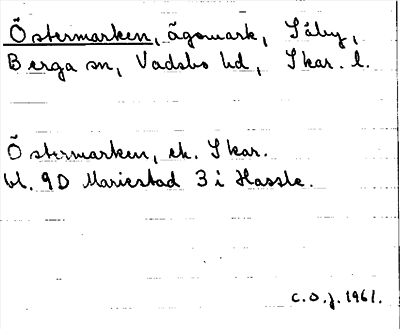 Östermarken, ägomark, Såby,
Berga sn, Vadsbo hd, Skar. l.
Östermarken, ek. Skar.
bl. 9D Mariestad 3 i Hassle.
C.O.J. 1961.